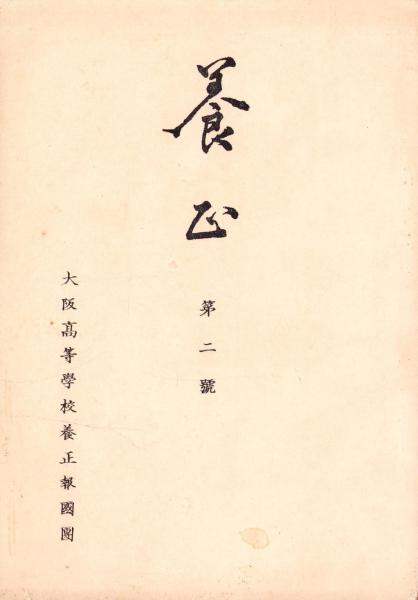 養正
第二號
大阪高等學校養正報國團